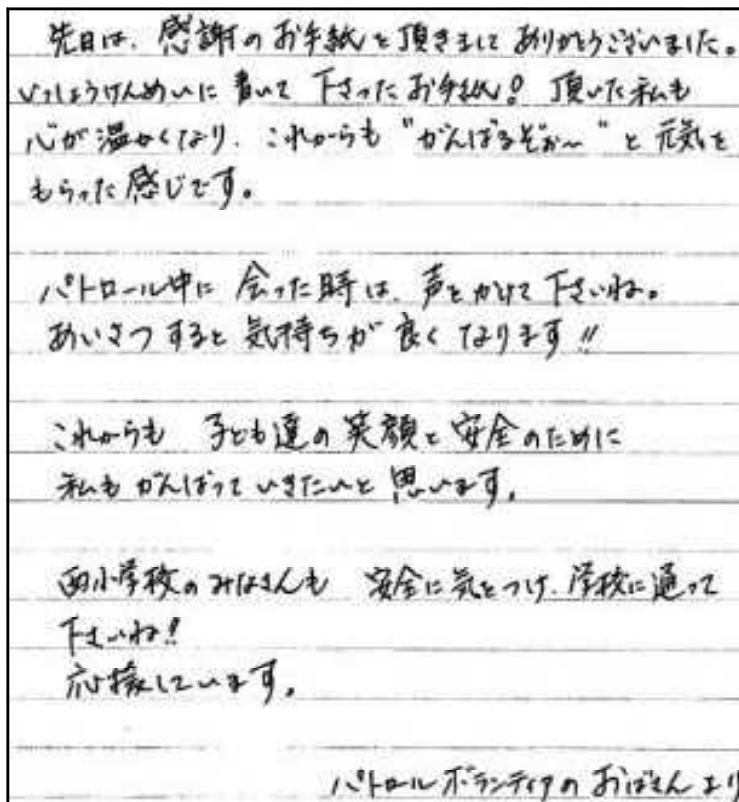 先日は、感謝のお手紙を頂きまして ありがとうございました。
いっしょうけんめいに 書いて 下さったお手紙! 頂いた私も
心が温かくなり、これからも "がんばるぞぉ〜" と 元気を
もらった感じです。
パトロール中に 会った時は、声をかけて 下さいね。
あいさつすると 気持ちが 良く なります!!
これからも 子ども達の 笑顔と 安全のために
私も がんばって いきたいと 思います。
西小学校の みなさんも 安全に気をつけ、学校に通って
下さいね!
応援しています。
パトロールボランティアの おばさんより